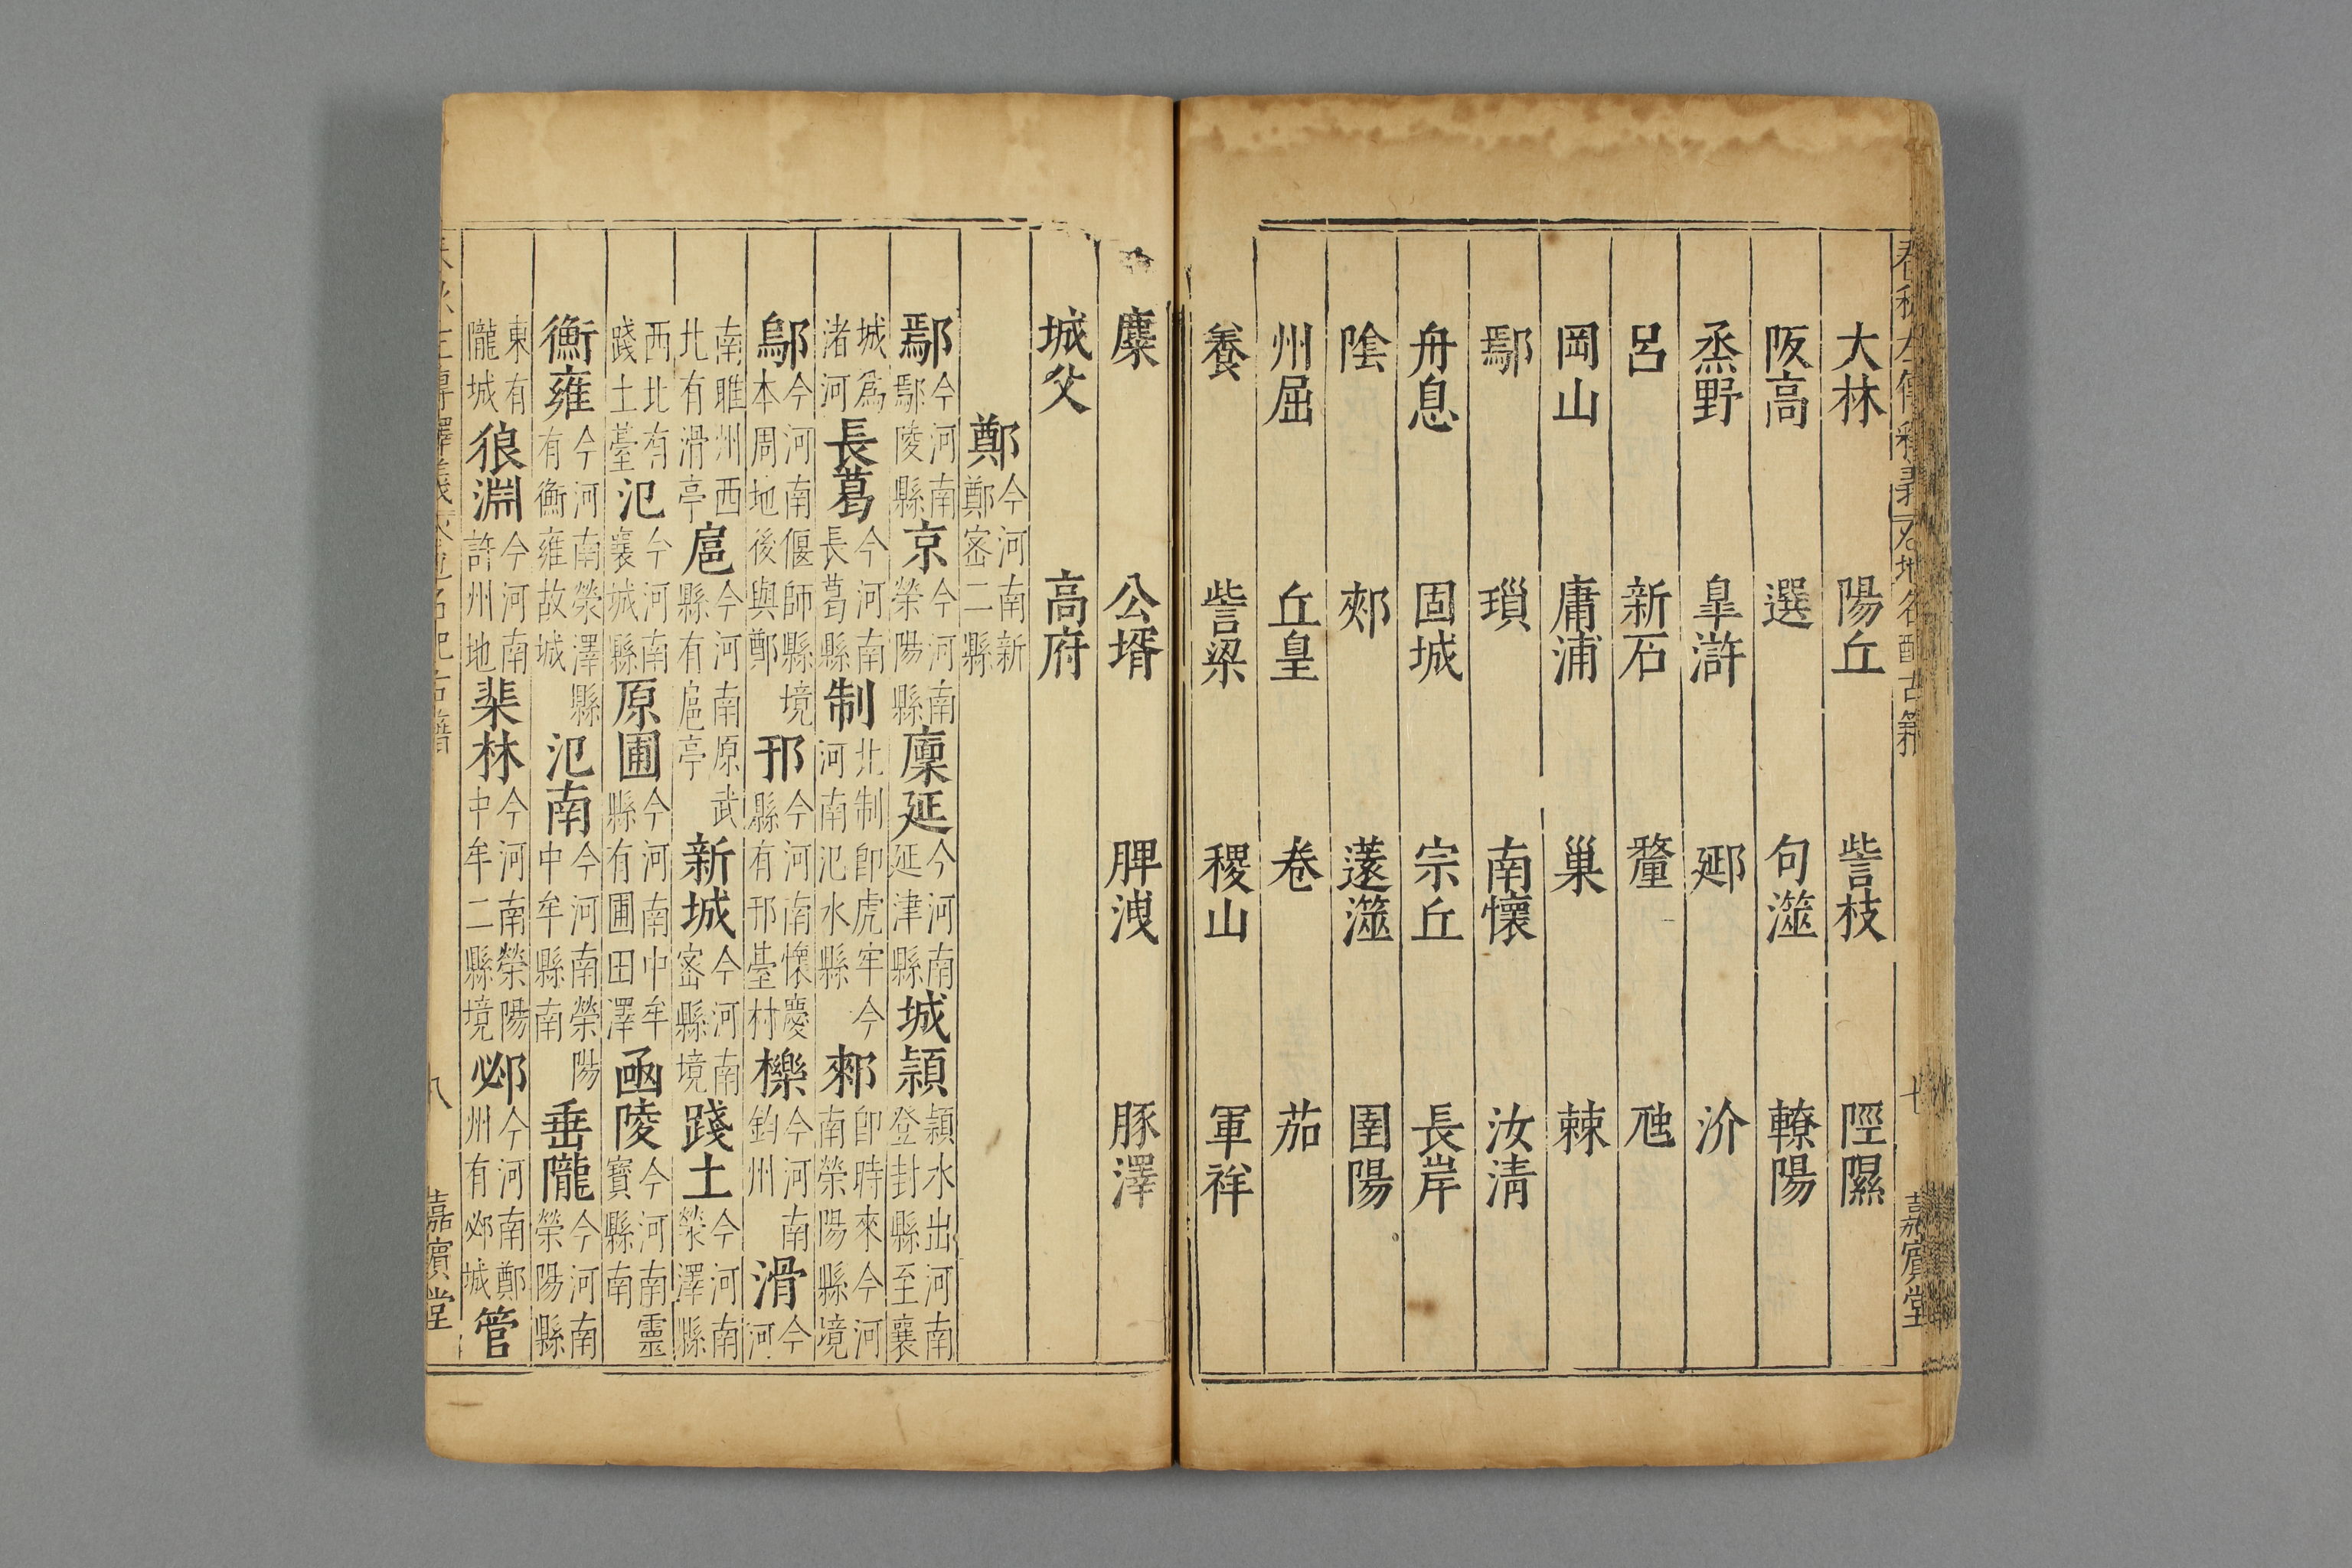 春秋左傳釋義 名地名配古籍
七
嘉賓堂
大林 陽丘 訾枝 陘隰
阪高 選 句澨 轑陽
烝野 皐滸 郔 汾
呂 新石 犛 虺
岡山 庸浦 巢 棘
鄢 瑣 南懷 汝清
舟息 固城 宗丘 長岸
陰 郟 薳澨 圉陽
州屈 丘皇 卷 茄
養 訾梁 稷山 軍祥
麋 公壻 脾洩 豚澤
城父 高府
鄭今河南新鄭密二縣
鄢今河南鄢陵縣京今河南滎陽縣廩延今河南延津縣城潁潁水出河南登封縣至襄
城爲渚河長葛今河南長葛縣制北制即虎牢今河南氾水縣郲即時來今河南滎陽縣境
鄔今河南偃師縣境本周地後與鄭邘今河南懷慶縣有邘臺村櫟今河南鈞州滑今河
南睢州西北有滑亭扈今河南原武縣有扈亭新城今河南密縣境踐土今河南滎澤縣
西北有踐土臺氾今河南襄城縣原圃今河南中牟縣有圃田澤函陵今河南靈寶縣南
衡雍今河南滎澤縣有衡雍故城氾南今河南滎陽中牟縣南垂隴今河南滎陽縣
東有隴城狼淵今河南許州地棐林今河南滎陽中牟二縣境邲今河南鄭州有邲城管
八
嘉賓堂